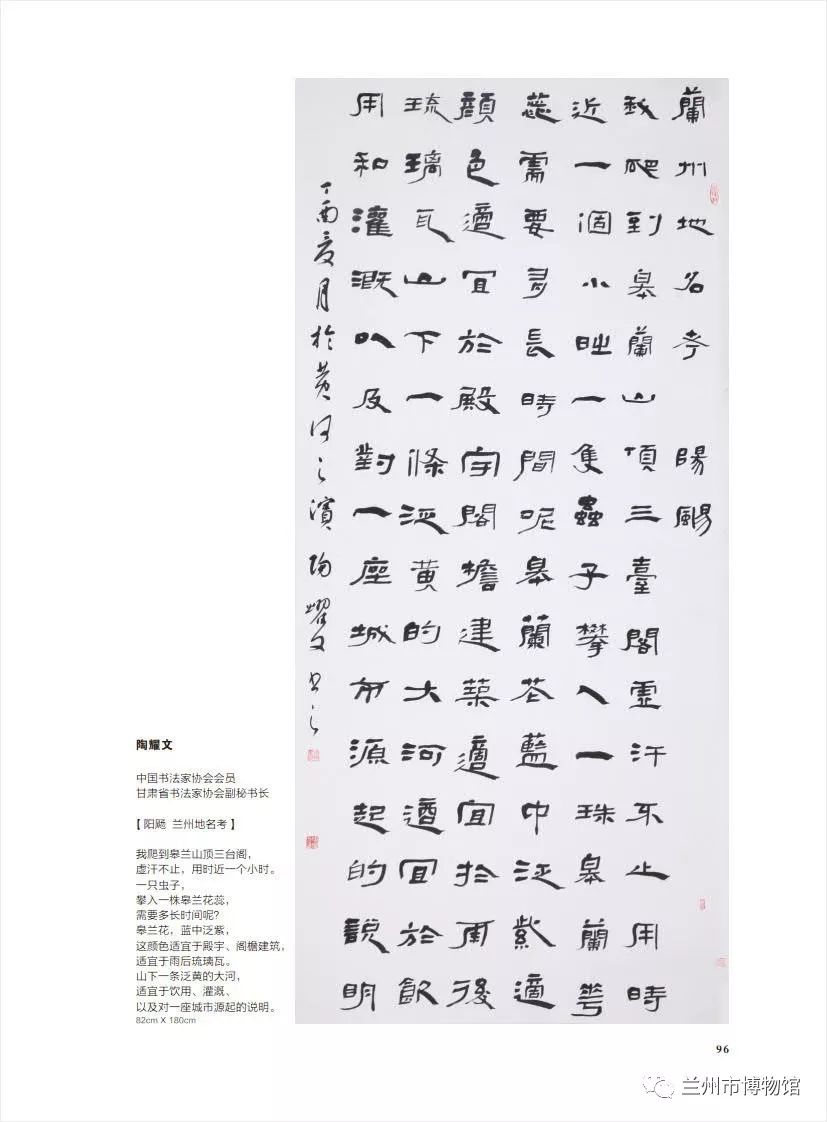 蘭州地名考 陽颺
我爬到皋蘭山頂三臺閣虛汗不止用時
近一個小時一隻蟲子攀入一珠皋蘭花
蕊需要多長時間呢皋蘭花藍中泛紫適
顏色適宜於殿宇閣檐建築適宜於雨後
琉璃瓦山下一條泛黃的大河適宜於飲
用和灌溉以及對一座城市源起的說明
丁酉夏月於黃河之濱陶耀文書之
陶耀文
中国书法家协会会员
甘肃省书法家协会副秘书长
【 阳飏 兰州地名考 】
我爬到皋兰山顶三台阁，
虚汗不止，用时近一个小时。
一只虫子，
攀入一株皋兰花蕊，
需要多长时间呢？
皋兰花，蓝中泛紫，
这颜色适宜于殿宇、阁檐建筑，
适宜于雨后琉璃瓦。
山下一条泛黄的大河，
适宜于饮用、灌溉、
以及对一座城市源起的说明。
82cm X 180cm
96
兰州市博物馆